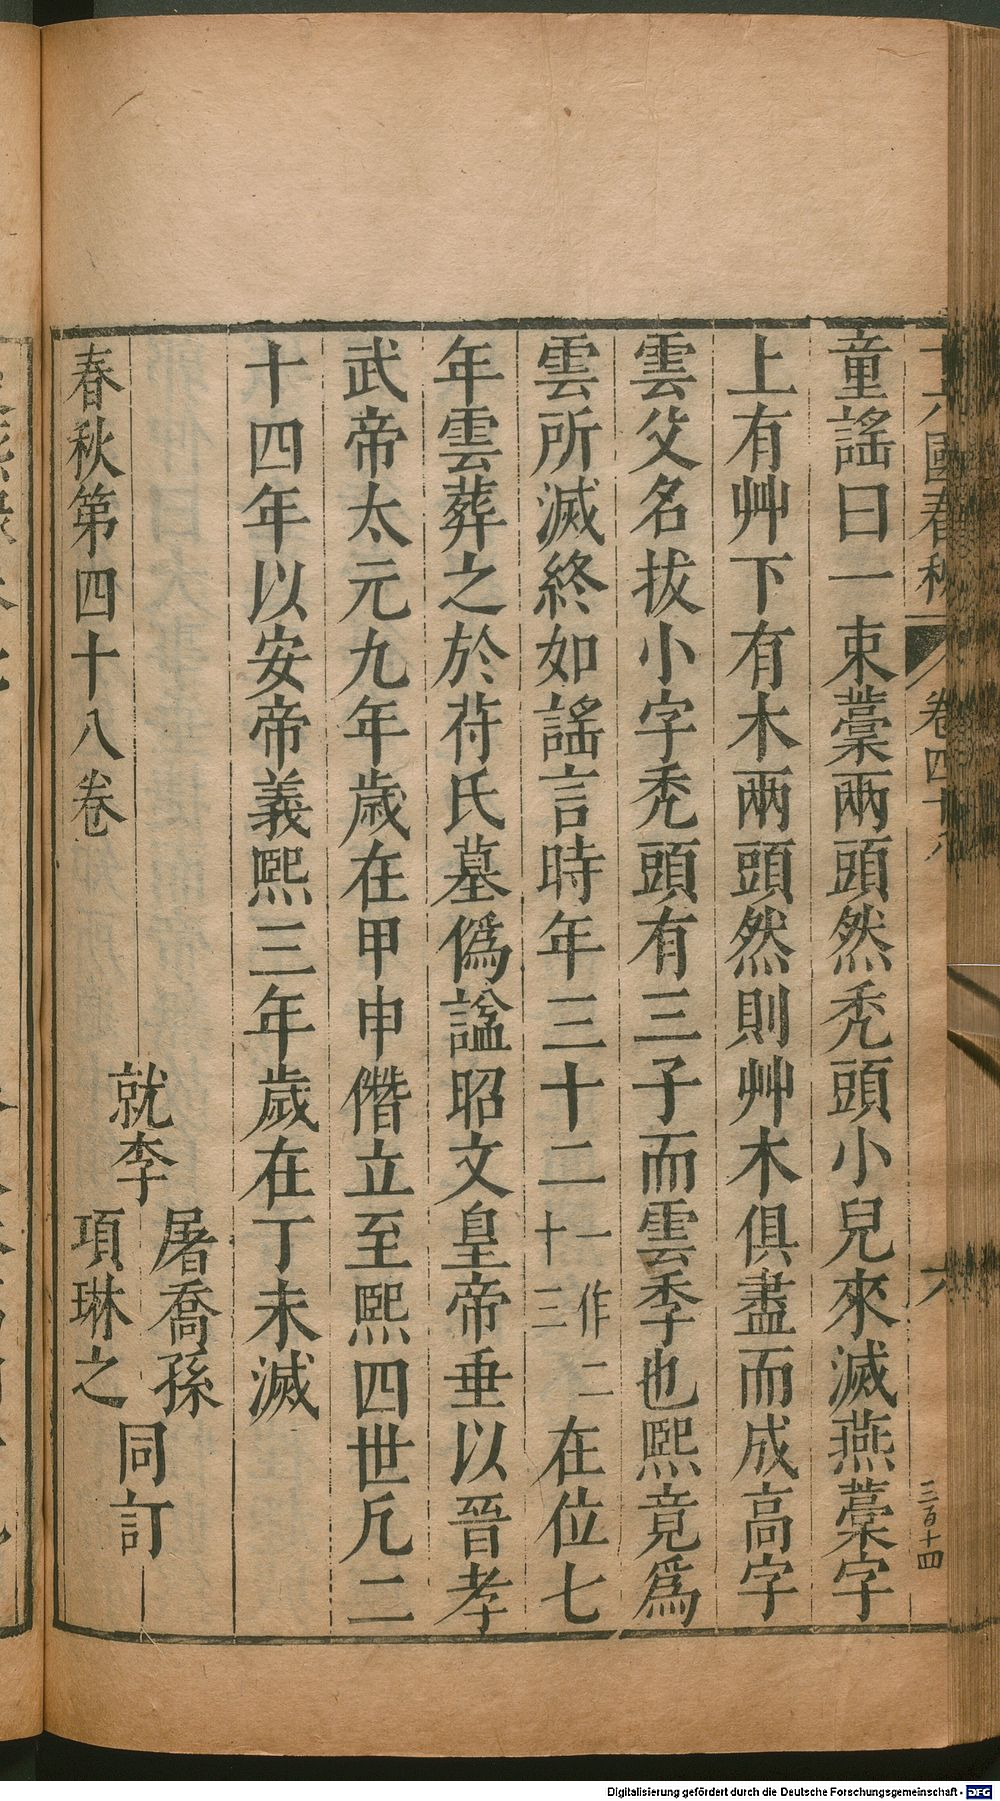 十六國春秋 卷四十八 六 三百十四
童謠曰一束藁兩頭然禿頭小兒來滅燕藁字
上有艸下有木兩頭然則艸木俱盡而成高字
雲父名拔小字禿頭有三子而雲季也熙竟爲
雲所滅終如謠言時年三十二一作二十三在位七
年雲葬之於苻氏墓僞諡昭文皇帝垂以晉孝
武帝太元九年歲在甲申僭立至熙四世凡二
十四年以安帝義熙三年歲在丁未滅
就李 屠喬孫 項琳之 同訂
春秋第四十八卷
Digitalisierung gefördert durch die Deutsche Forschungsgemeinschaft - DFG